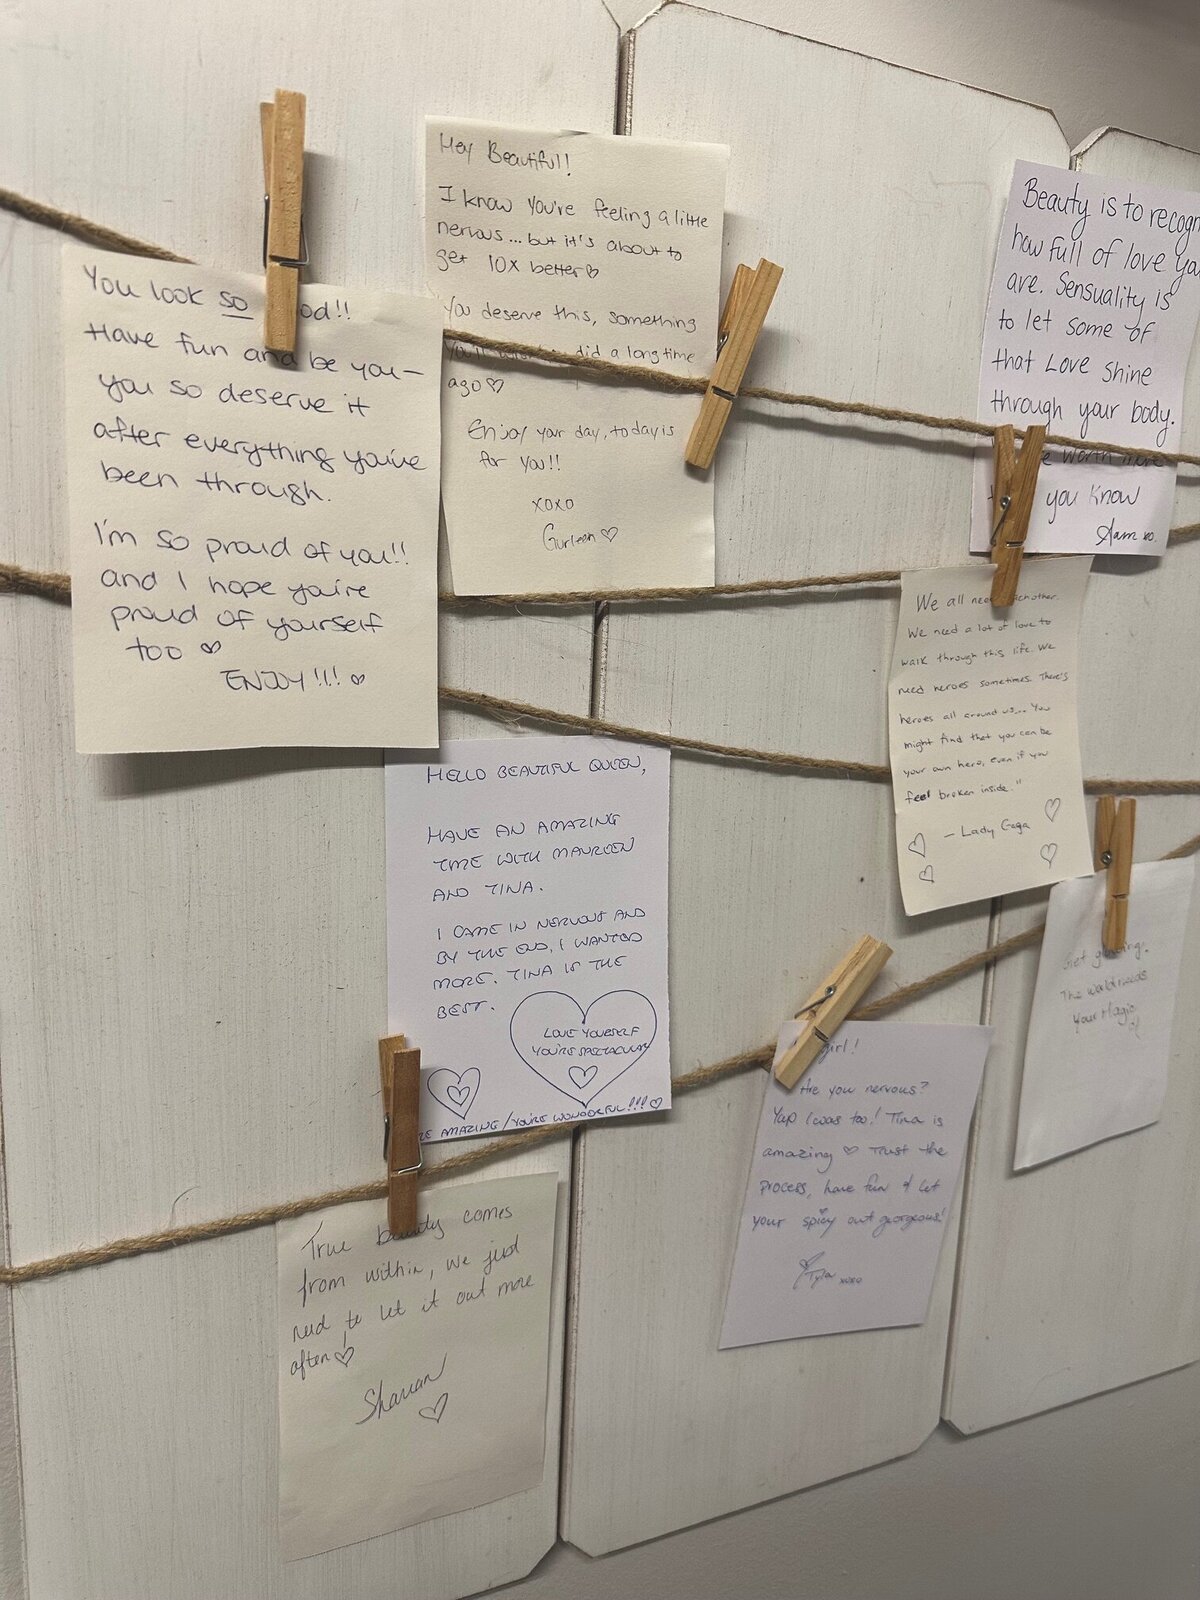 You look so od!!
Have fun and be you-
you so deserve it
after everything you've
been through.
I'm so proud of you!!
and I hope you're
proud of yourself
too ♡
ENJOY!!! ♡
Hey Beautiful!
I know you're feeling a little
nervous... but it's about to
get 10x better♡
You deserve this, something
did a long time
ago♡
Enjoy your day, today is
for you!!
xoxo
Gurleen ♡
Beauty is to recogn
how full of love you
are. Sensuality is
to let some of
that Love shine
through your body.
worth more
you know
Sam xo.
We all need eachother.
We need a lot of love to
walk through this life. We
need heroes sometimes. There's
heroes all around us... You
might find that you can be
your own hero, even if you
feel broken inside."
- Lady Gaga
HELLO BEAUTIFUL QUEEN,
HAVE AN AMAZING
TIME WITH MAUREEN
AND TINA.
I CAME IN NERVOUS AND
BY THE END, I WANTED
MORE. TINA IS THE
BEST.
LOVE YOURSELF
YOU'RE SPECTACULAR
RE AMAZING/YOU'RE WONDERFUL!!!♡
Get glowing.
The world needs
Your Magic
:)
girl!
Are you nervous?
Yup I was too! Tina is
amazing ♡ Trust the
process, have fun & let
your spicy out georgeous!
Tyla xoxo
True beauty comes
from within, we just
need to let it out more
often♡
Shauan